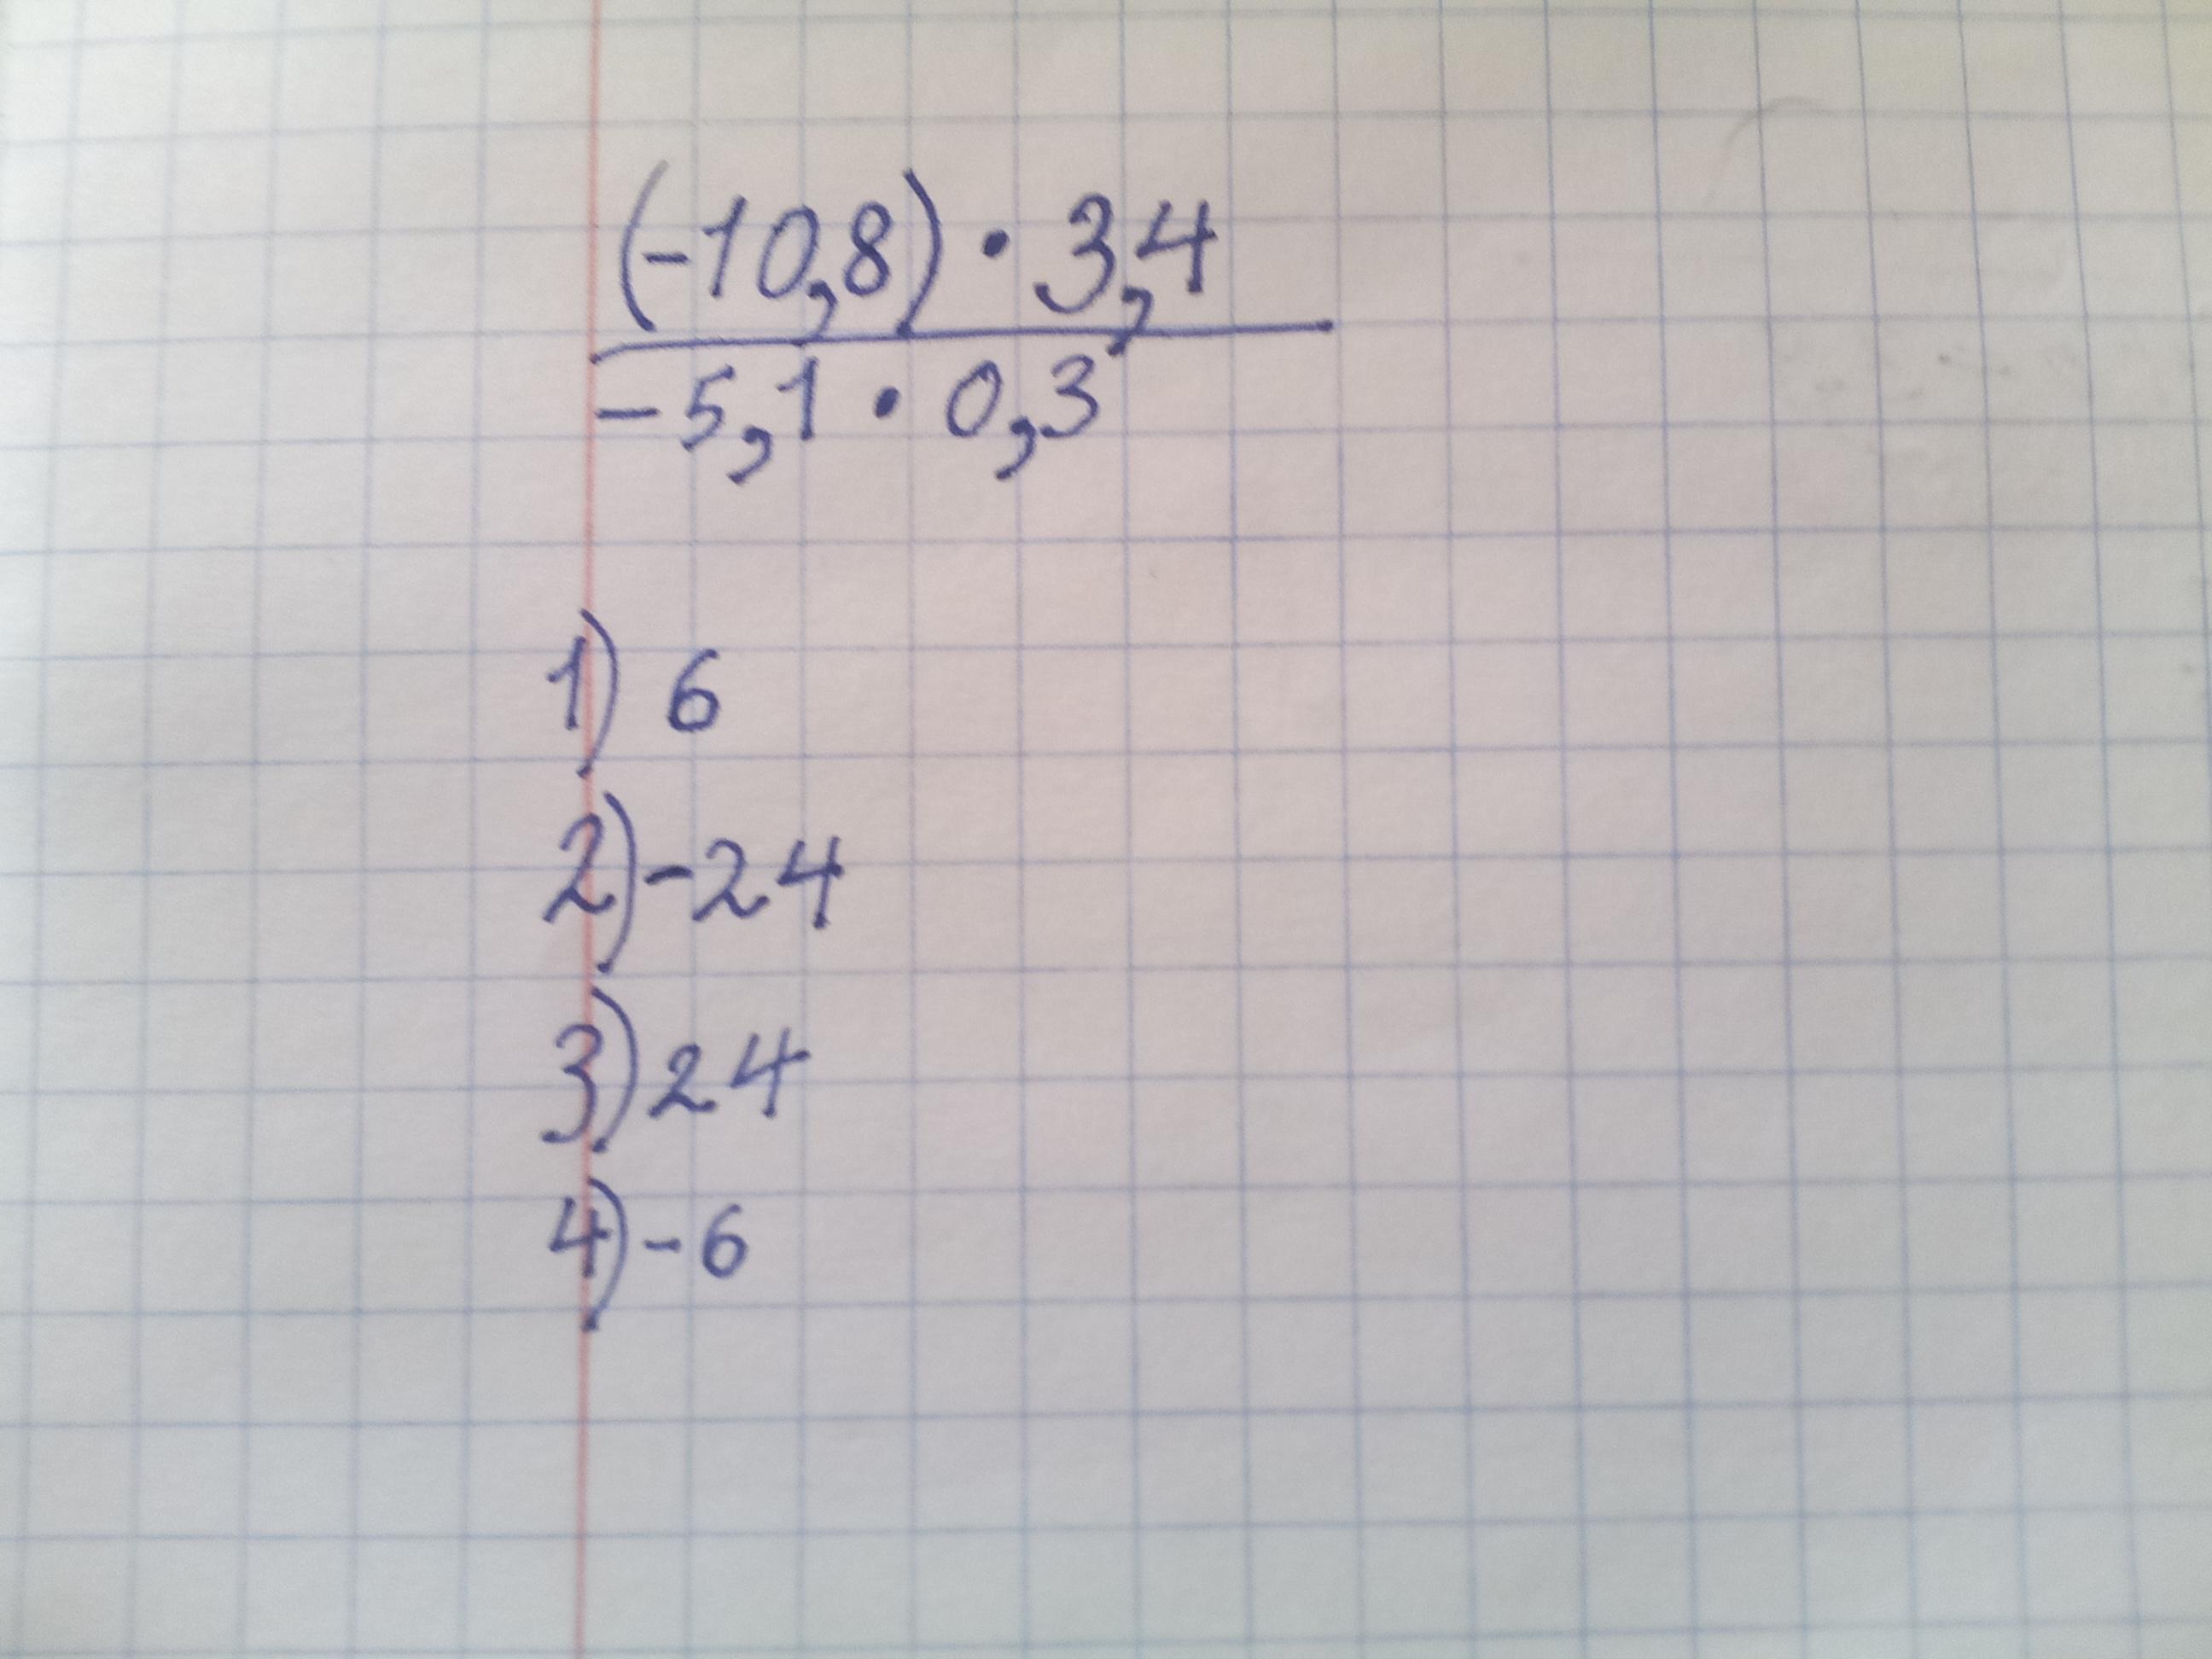 (-10,8) · 3,4
-5,1 · 0,3
1) 6
2) -24
3) 24
4) -6